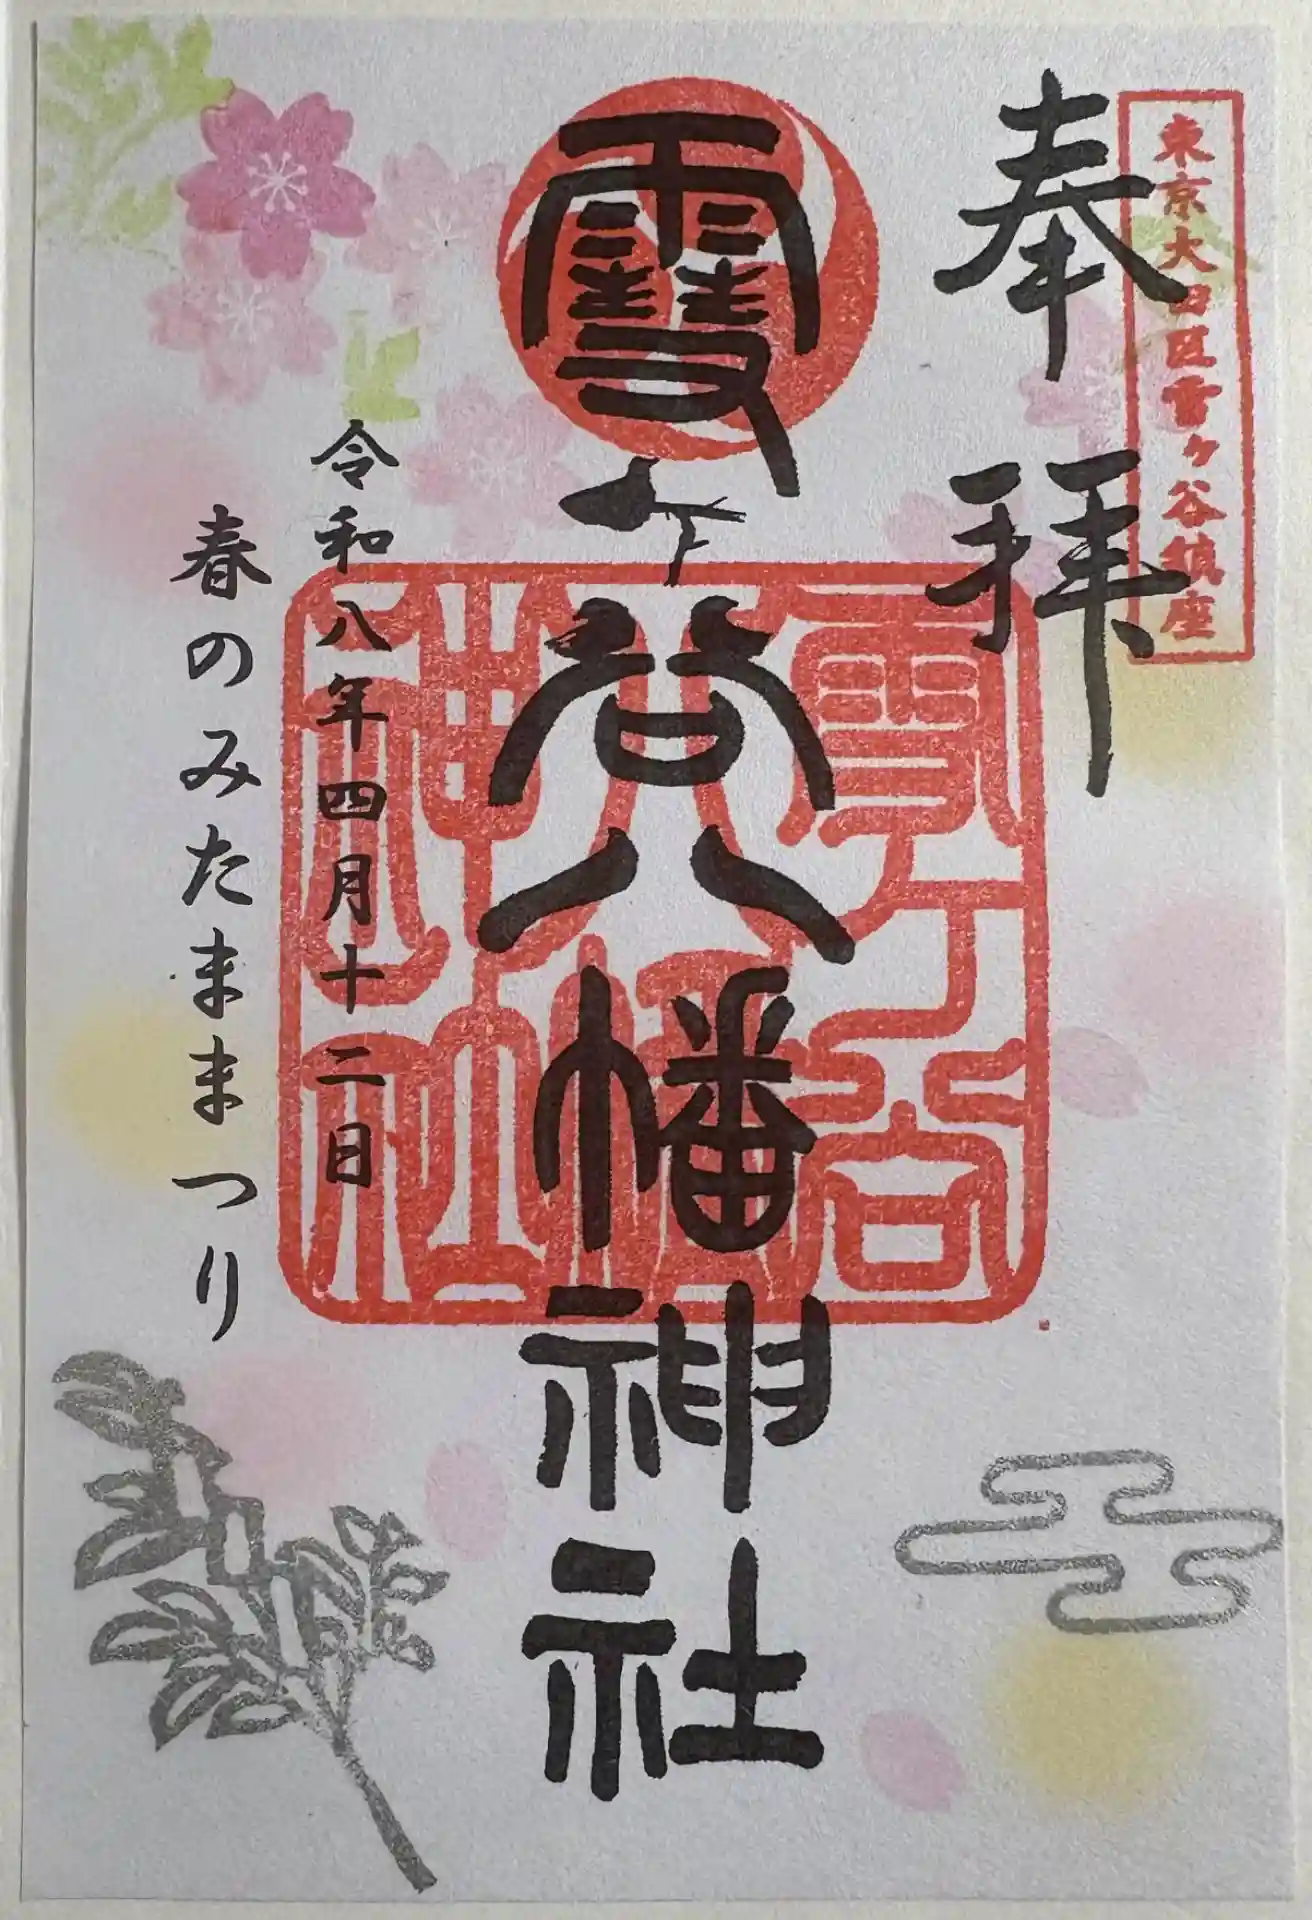 東京大田区雪ヶ谷鎮座
奉拝
雪ヶ谷八幡神社
雪ケ谷
八幡
神社
令和八年四月十二日
春のみたままつり